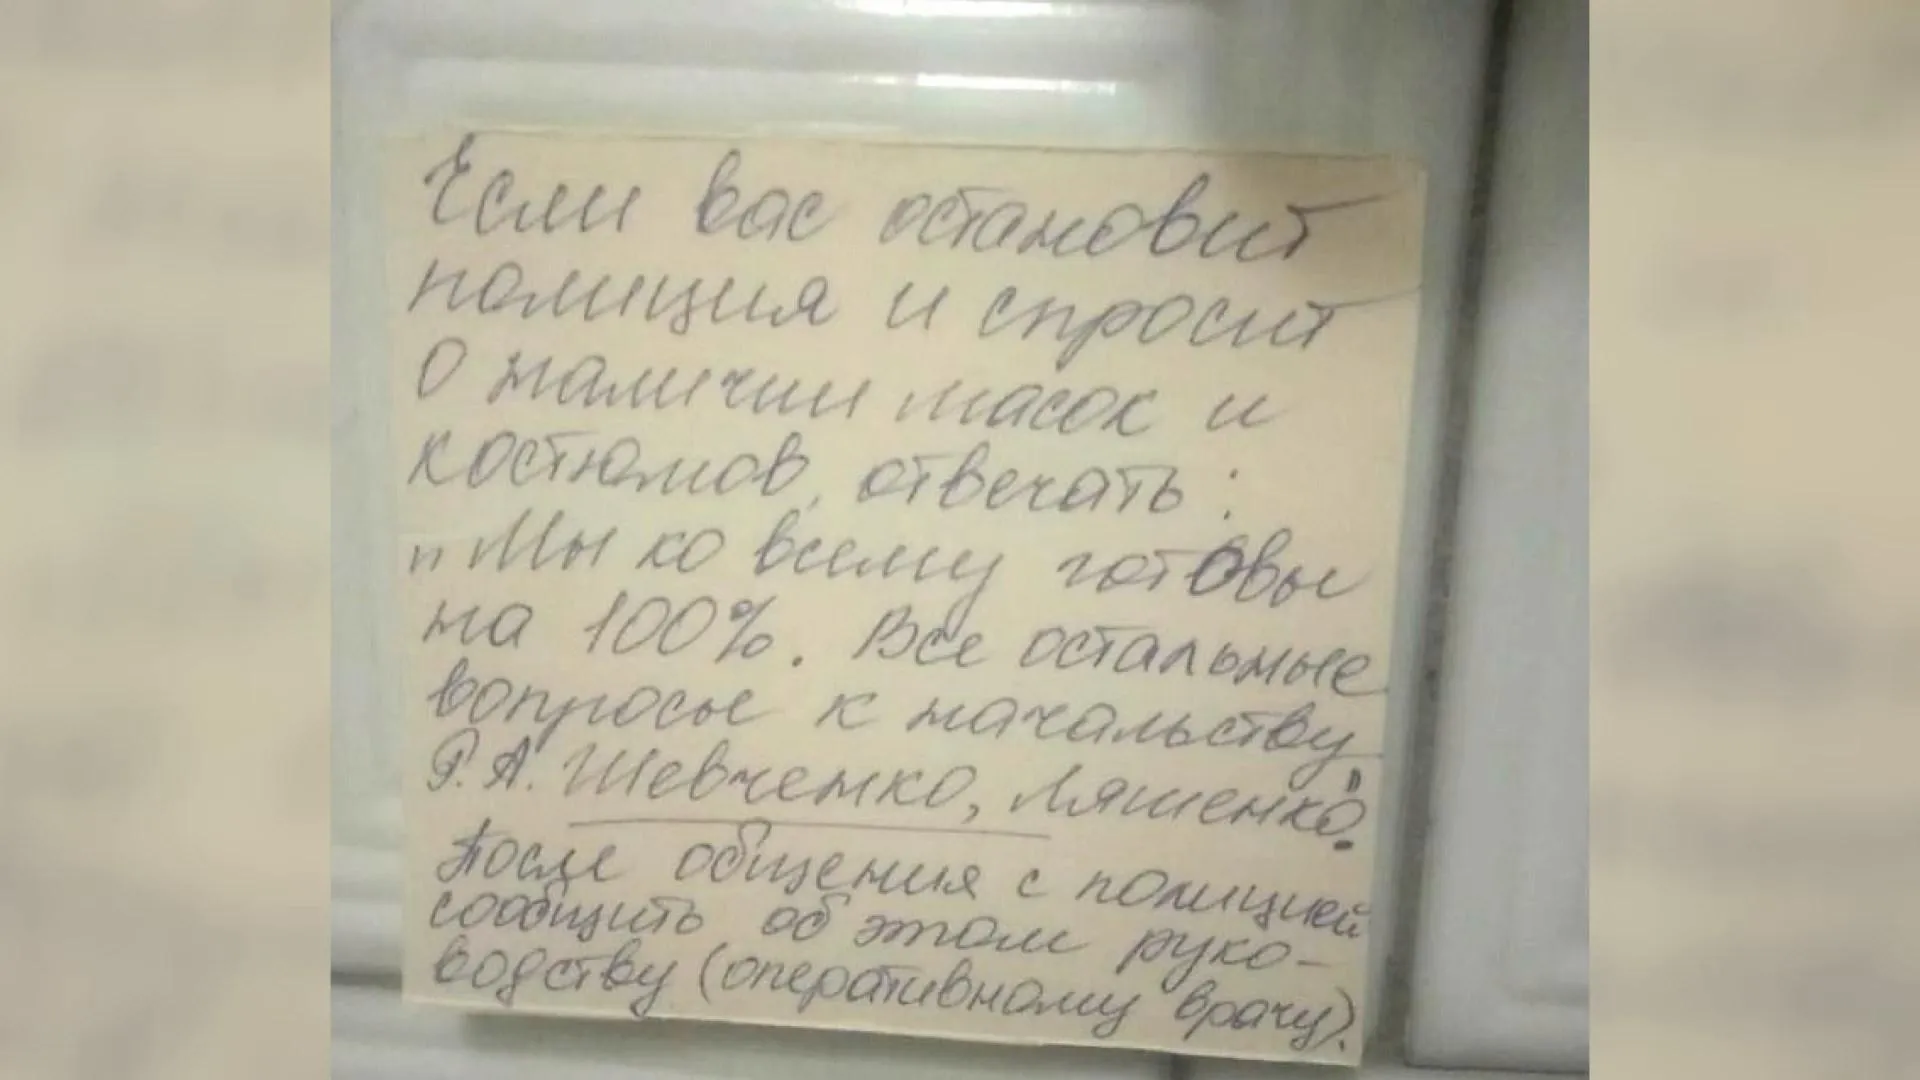 Если вас остановит
полиция и спросит
о наличии масок и
костюмов, отвечать:
"Мы ко всему готовы
на 100%. Все остальные
вопросы к начальству
Р.А. Шевченко, Ляшенко".
После общения с полицией
сообщить об этом руко-
водству (оперативному врачу).